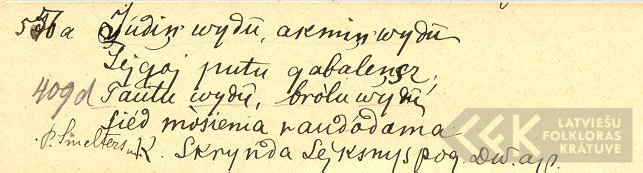 556a Júdiń wydû, akmiń wydû
Lejgoj putu gabaleńsz,
409d Tautu wydû, brólu wydû,
siéd mosienia raudódama
P. Smelters un K. Skrynda Lejksnys pog. Dw. apr.
LATVIEŠU
FOLKLORAS
KRĀTUVE